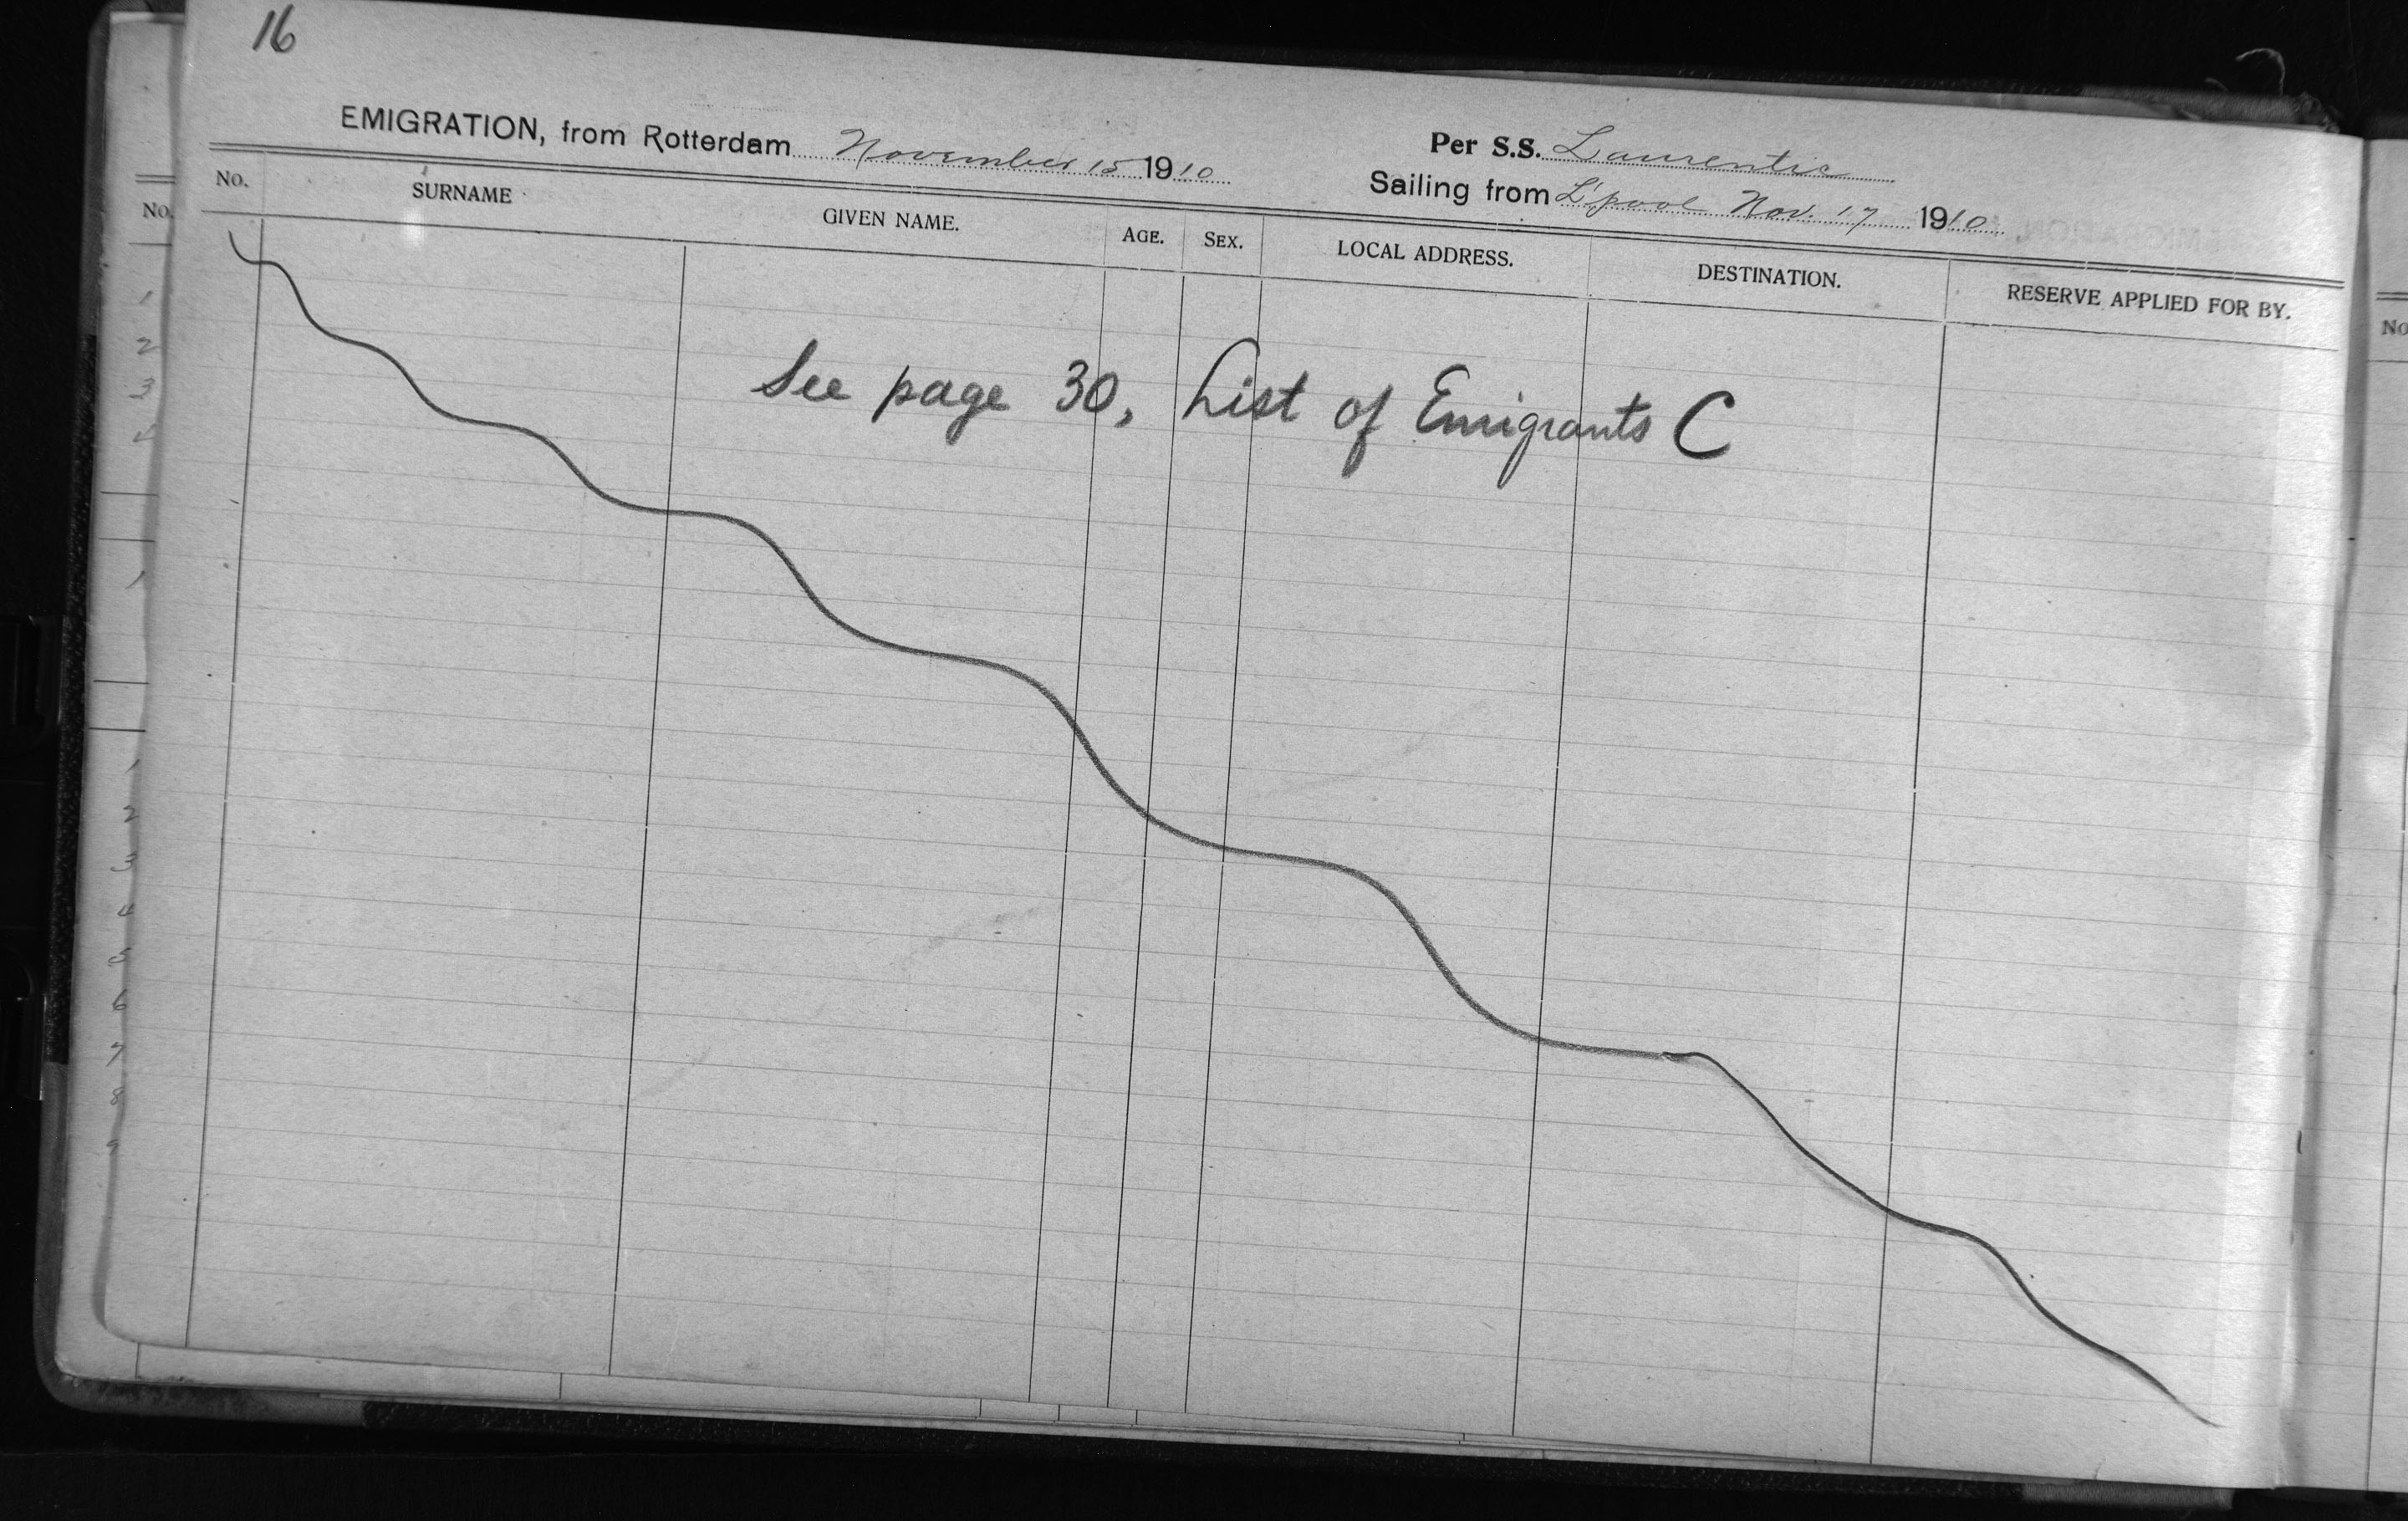 16
EMIGRATION, from Rotterdam November 15 1910
Per S.S. Laurentic
Sailing from L'pool Nov. 17 1910
No. SURNAME GIVEN NAME. AGE. SEX. LOCAL ADDRESS. DESTINATION. RESERVE APPLIED FOR BY.
See page 30, List of Emigrants C
No.
1
2
3
No